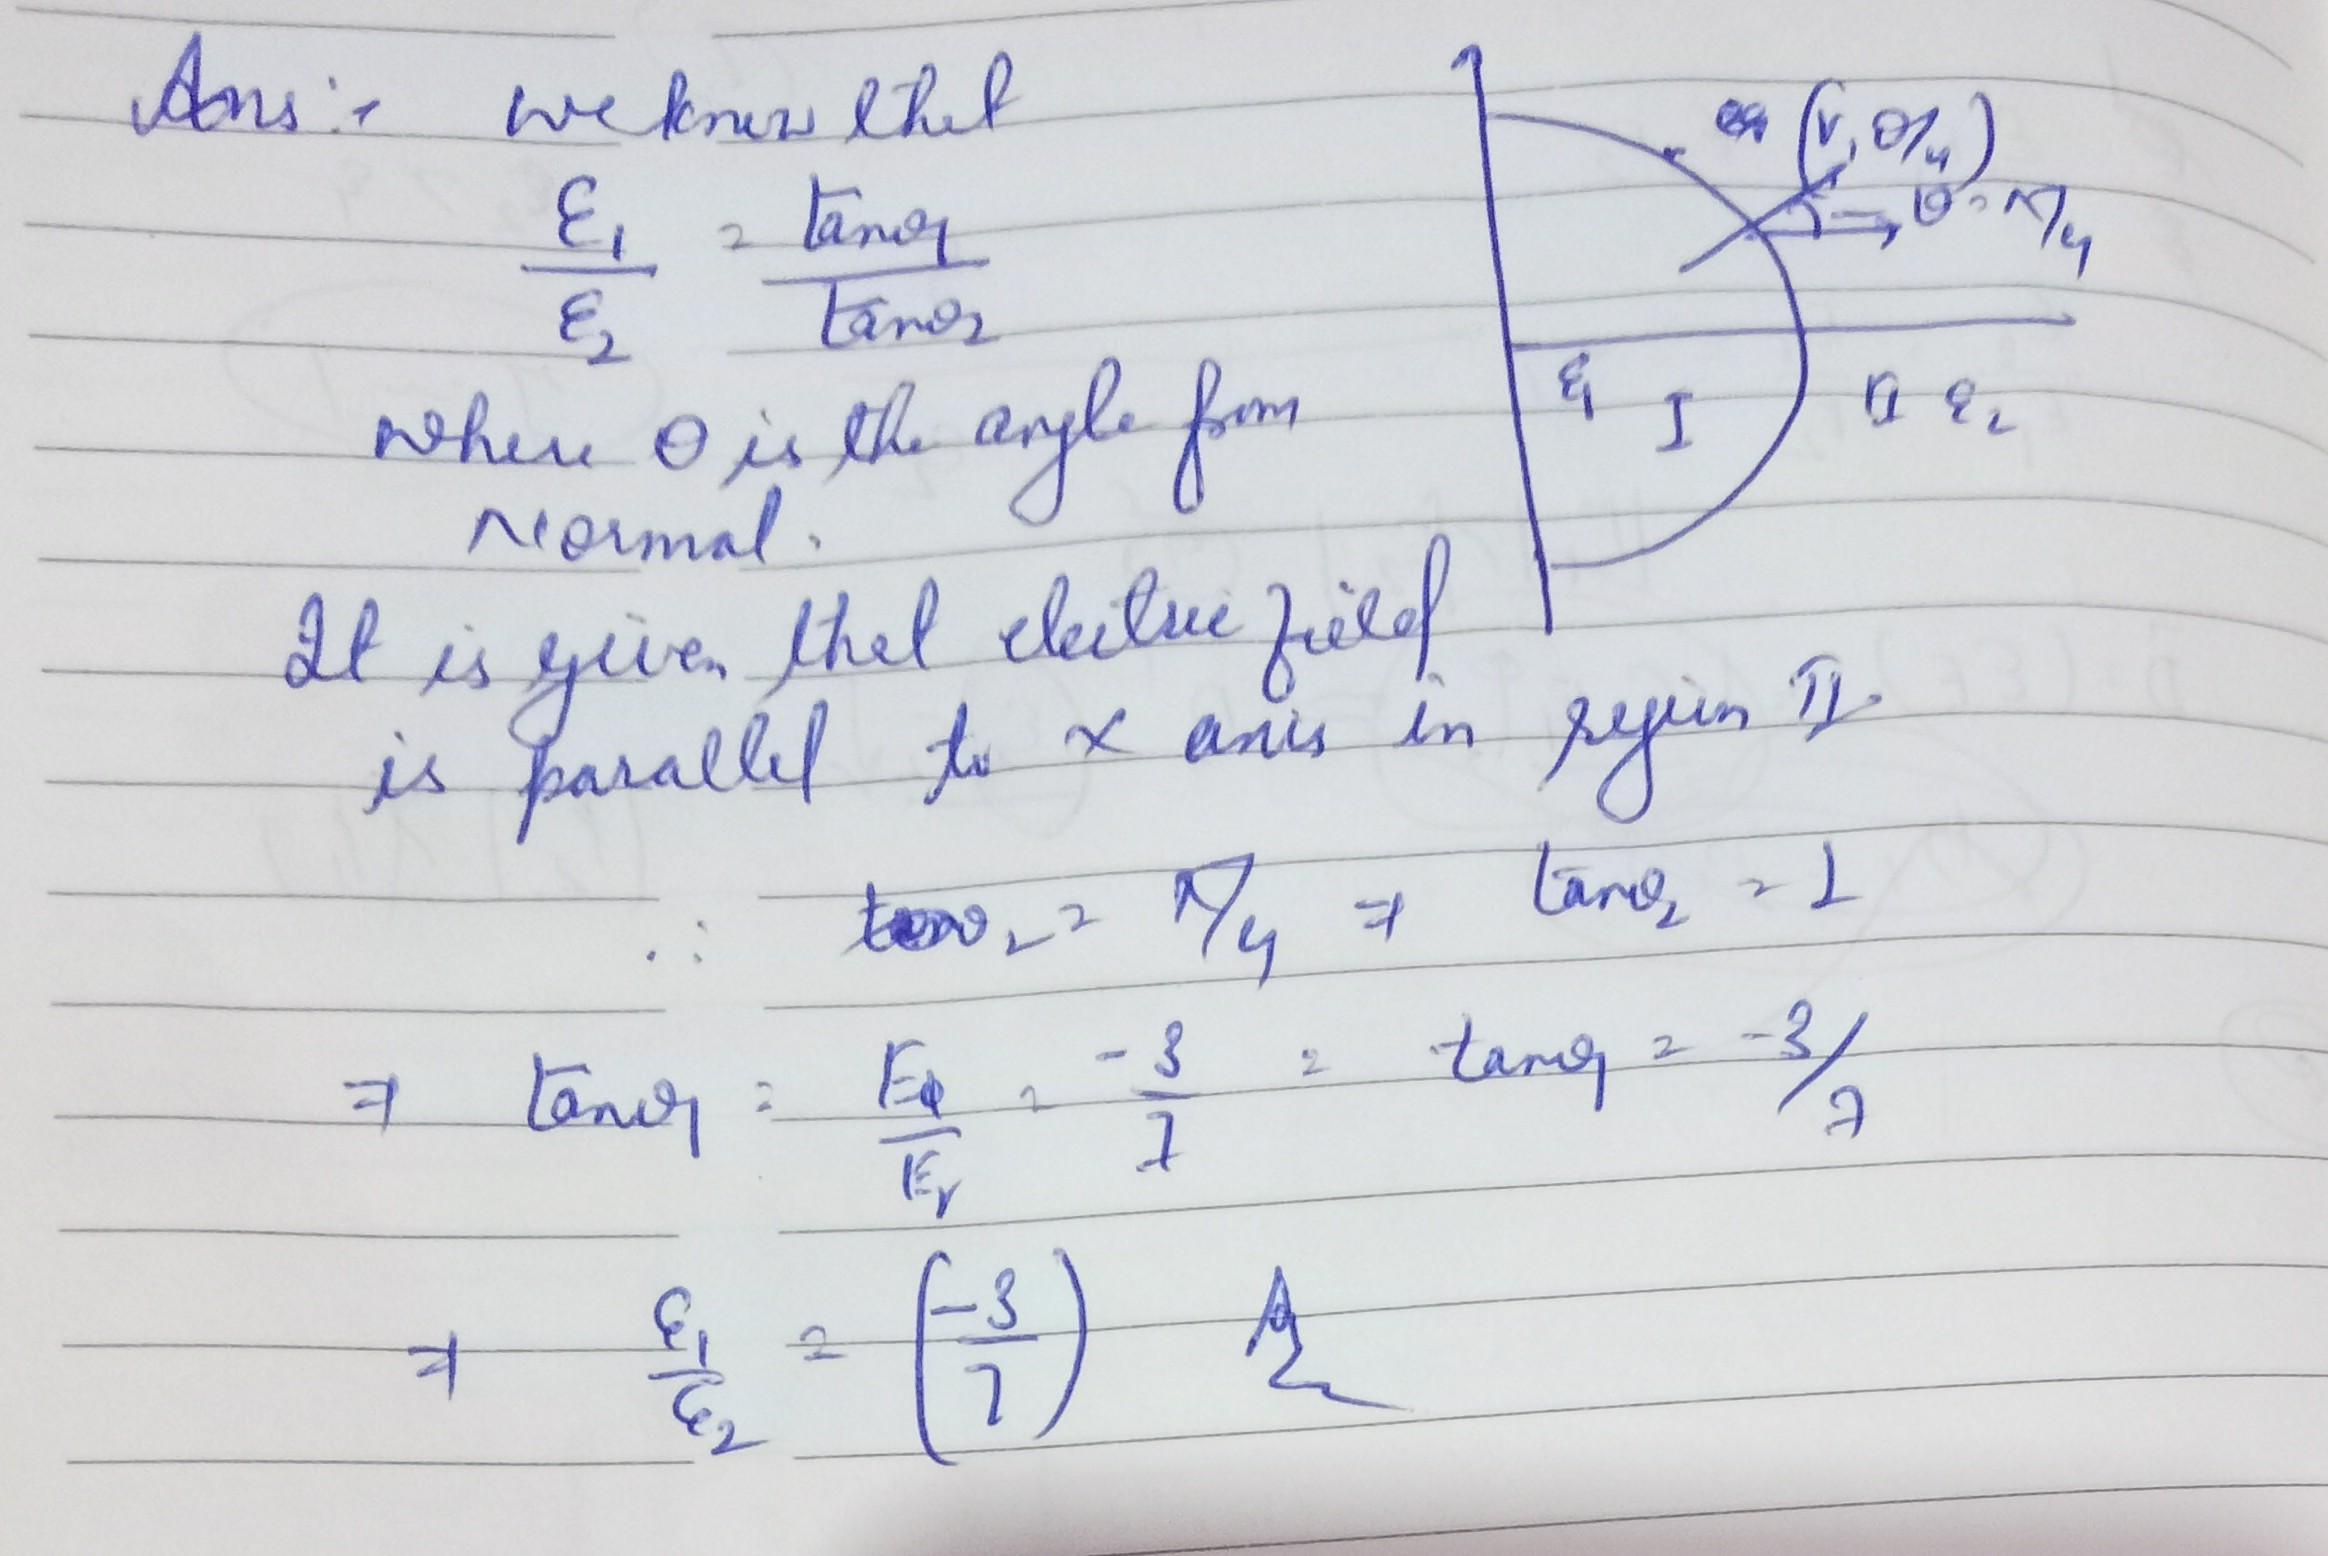 Ans:- we know that
ε1/ε2 = tanθ1/tanθ2
where θ is the angle from
Normal.
(r, θ/4)
θ=π/4
ε1 I II ε2
It is given that electric field
is parallel to x axis in region II.
∴ θ2 = π/4 ⇒ tanθ2 = 1
⇒ tanθ1 = Eφ/Er = -3/7 = tanθ1 = -3/7
⇒ ε1/ε2 = (-3/7) A